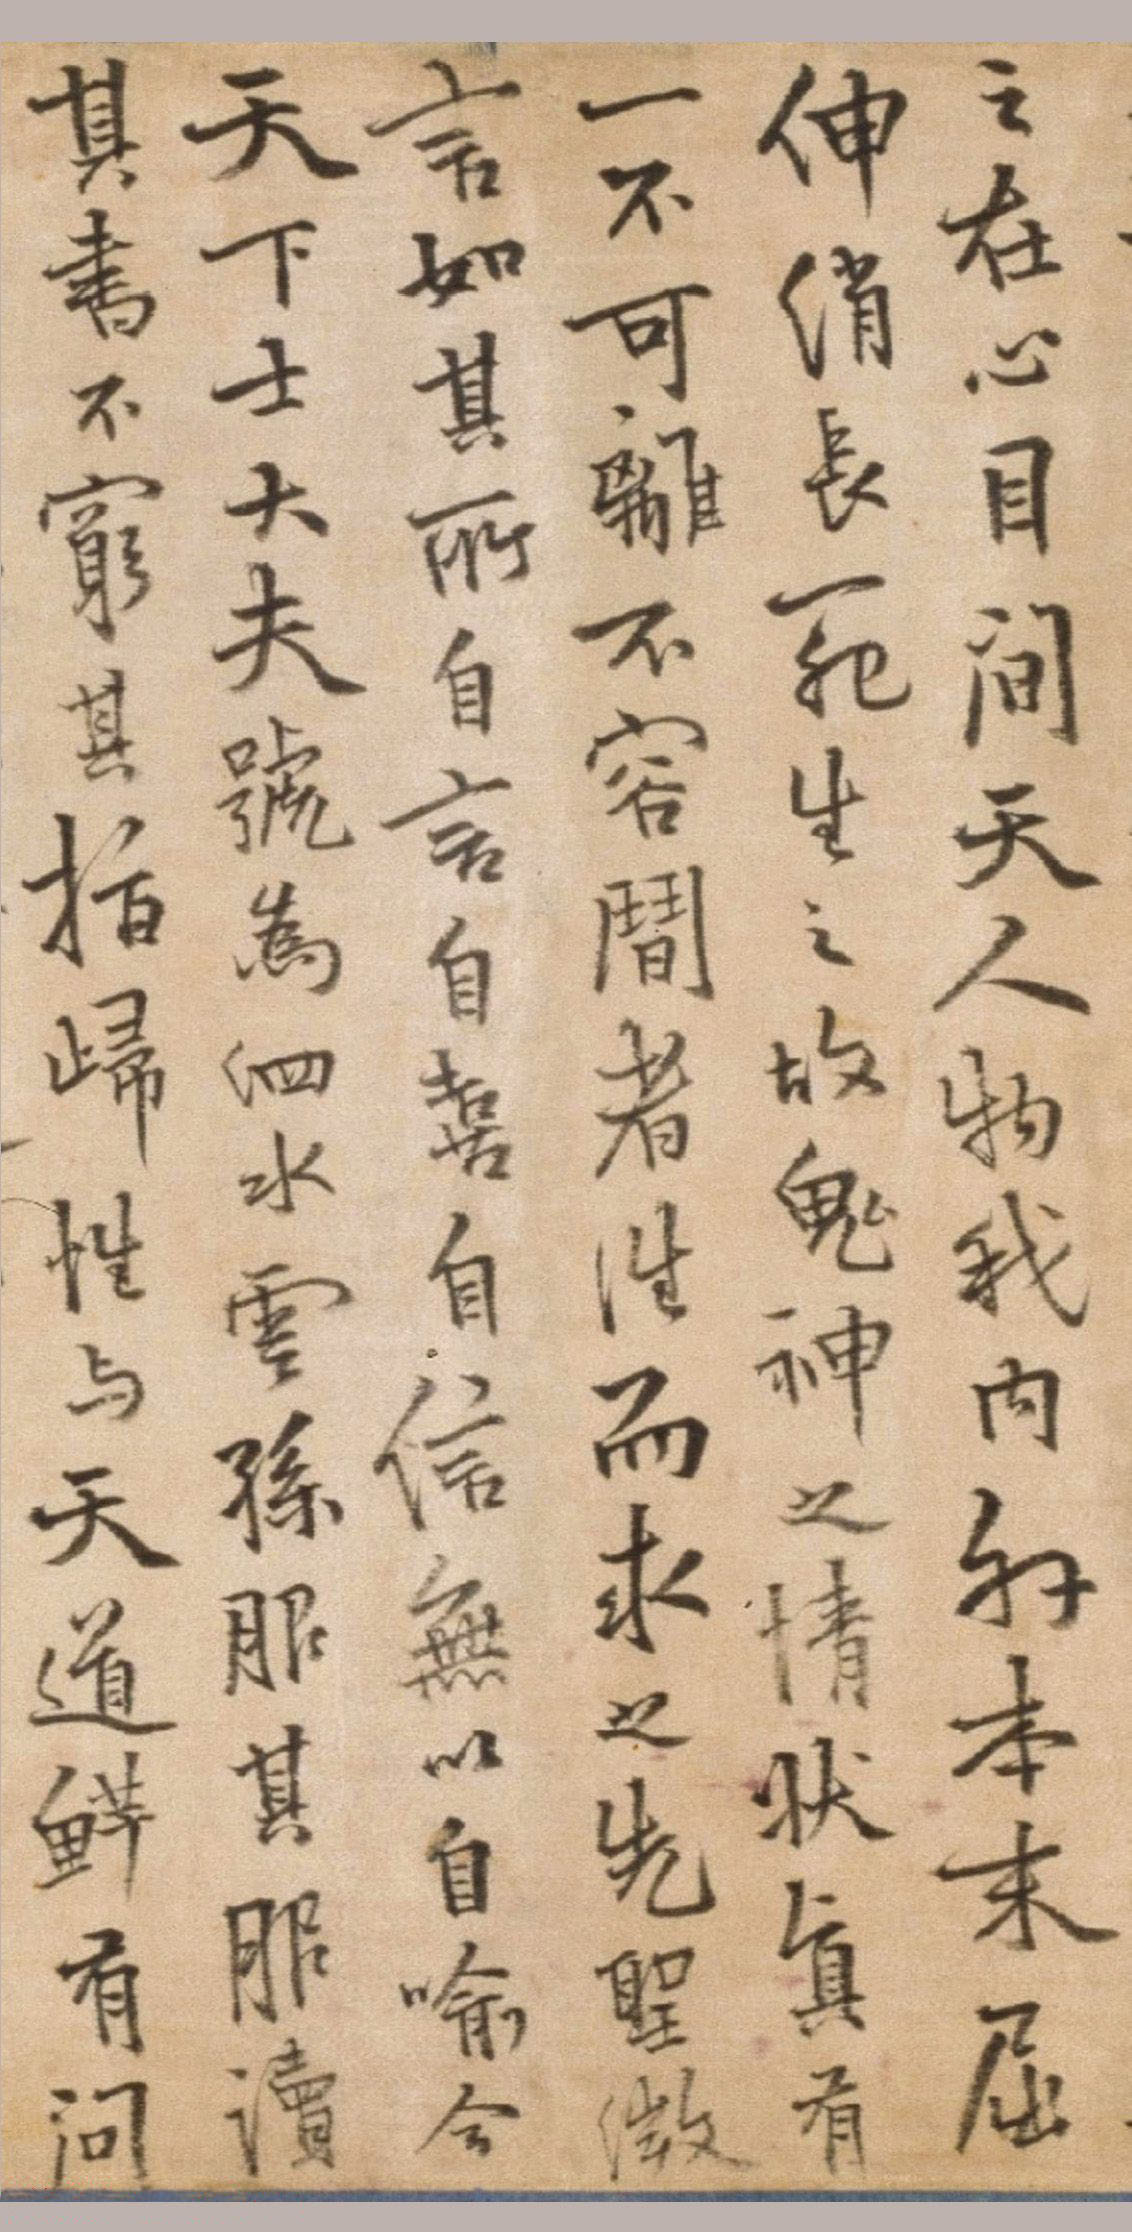 之在心目間天人物我內外本末屈
伸消長死生之故鬼神之情狀真有
一不可離不容間者往而求之先聖微
言如其所自言自喜自信無以自喻今
天下士大夫號為泗水雲孫服其服讀
其書不窮其指歸性与天道鮮有問